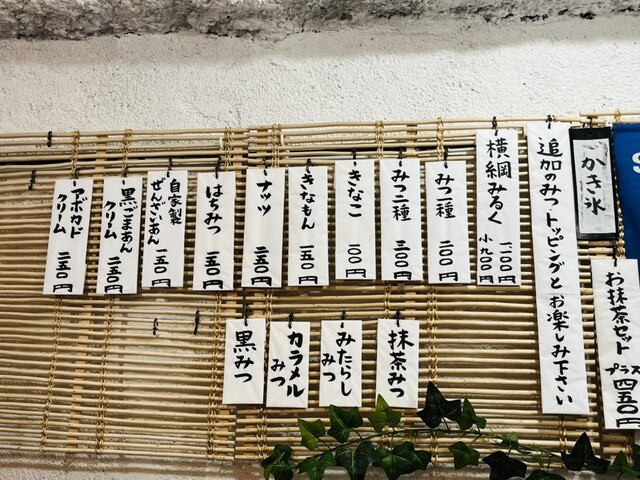 かき氷
追加のみつ、トッピングとお楽しみ下さい
横綱みるく
一、一〇〇円
小 九〇〇円
みつ一種
二〇〇円
みつ二種
三〇〇円
きなこ
一〇〇円
きなもん
一五〇円
ナッツ
二五〇円
はちみつ
一五〇円
自家製
ぜんざいあん
一五〇円
黒ごまあん
クリーム
二五〇円
アボカド
クリーム
二五〇円
抹茶みつ
みたらし
みつ
カラメル
みつ
黒みつ
お抹茶セット
プラス
四五〇円
S